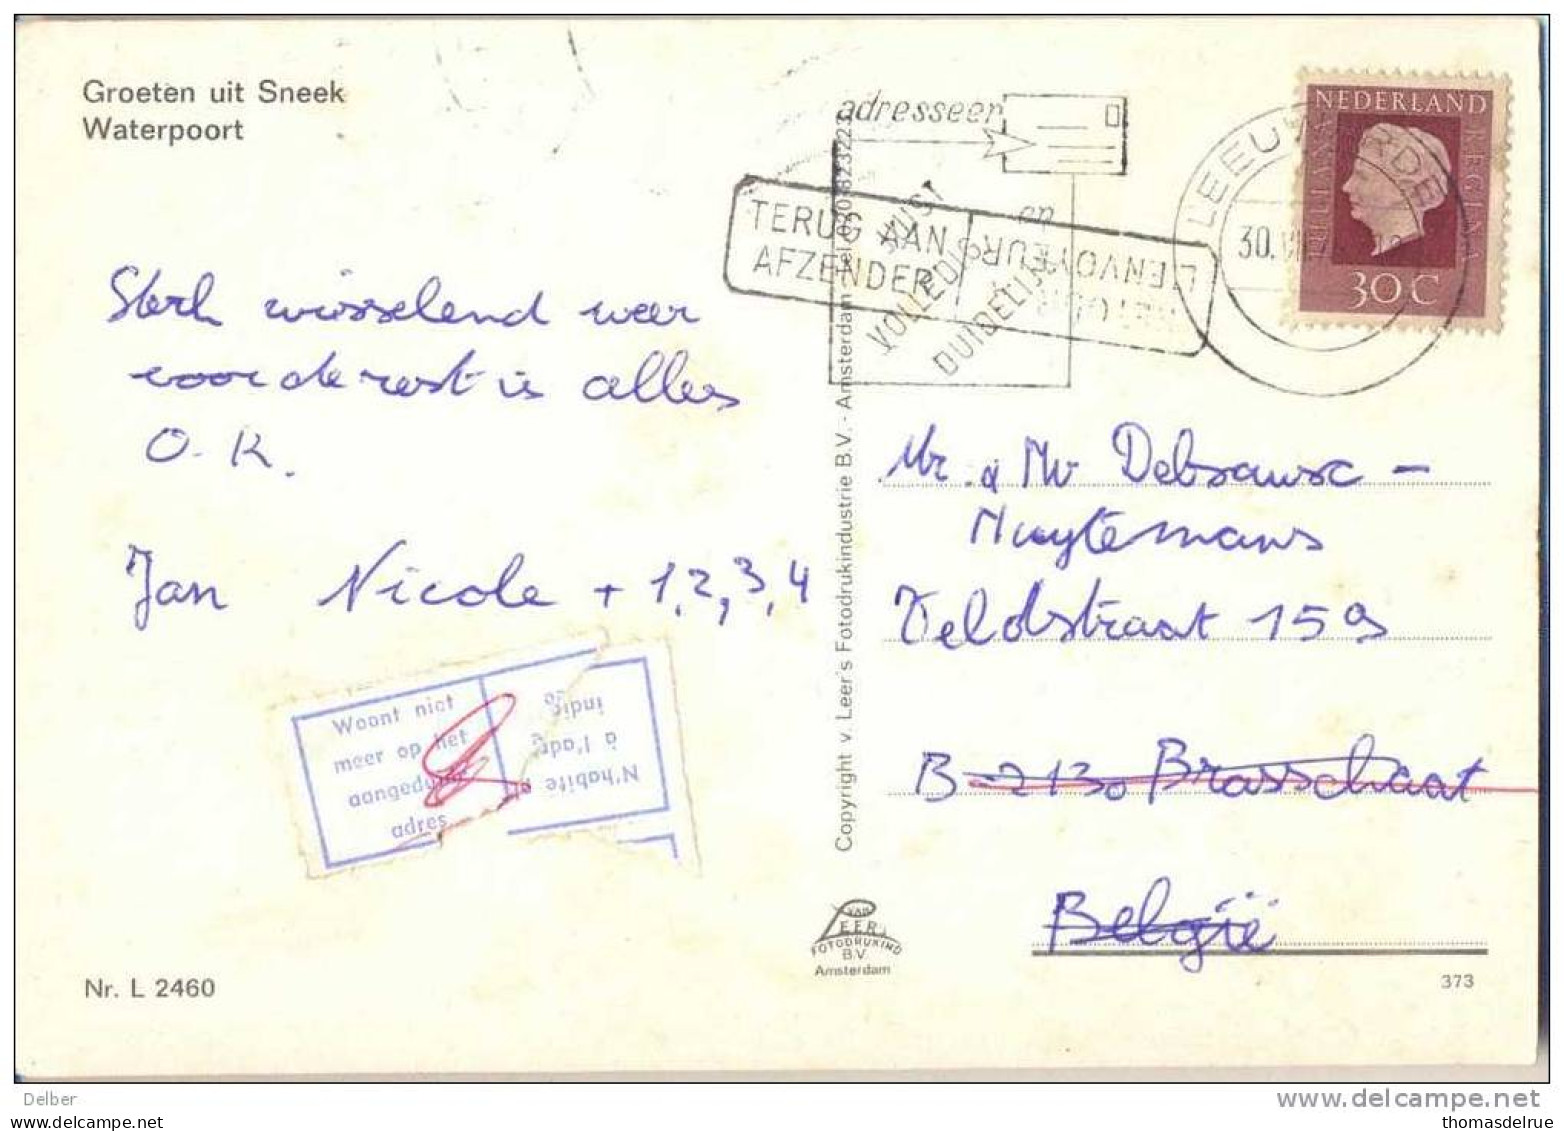 Groeten uit Sneek
Waterpoort
Sterk wisselend weer
voor de rest is alles
O.K.
Jan Nicole + 1,2,3,4
Woont niet
meer op het
aangeduide
adres
N'habite
à l'adr
indiq
Nr. L 2460
Copyright v. Leer's Fotodrukindustrie B.V. - Amsterdam
VAN
LEER
FOTODRUKIND
B.V.
Amsterdam
adresseer
JUIST
VOLLEDIG
en
DUIDELIJK
TERUG AAN
AFZENDER
RETOUR
L'ENVOYEUR
LEEUWARDEN
30.VII
NEDERLAND
JULIANA REGINA
30 C
Mr. & Mv
Huytemans
Veldstraat 159
B-2130 Brasschaat
België
373
Delber
delcampe.net
thomasdelrue